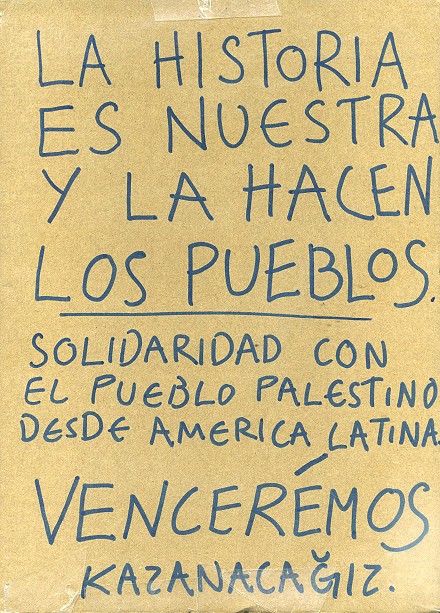 LA HISTORIA
ES NUESTRA
Y LA HACEN
LOS PUEBLOS.
SOLIDARIDAD CON
EL PUEBLO PALESTINO
DESDE AMERICA LATINA.
VENCERÉMOS
KAZANACAĞIZ.